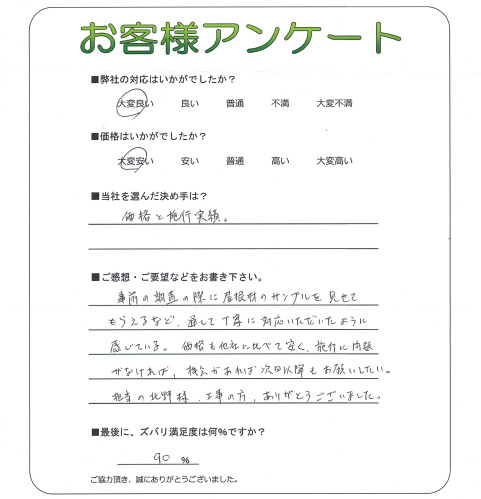 お客様アンケート
■弊社の対応はいかがでしたか？
大変良い 良い 普通 不満 大変不満
■価格はいかがでしたか？
大変安い 安い 普通 高い 大変高い
■当社を選んだ決め手は？
価格と施行実績。
■ご感想・ご要望などをお書き下さい。
事前の調査の際に屋根材のサンプルを見せて
もらえるなど、通して丁寧に対応いただいたように
感じている。価格も他社に比べて安く、施行に問題
がなければ、機会があれば次回以降もお願いしたい。
担当の北野様、工事の方、ありがとうございました。
■最後に、ズバリ満足度は何％ですか？
90 ％
ご協力頂き、誠にありがとうございました。